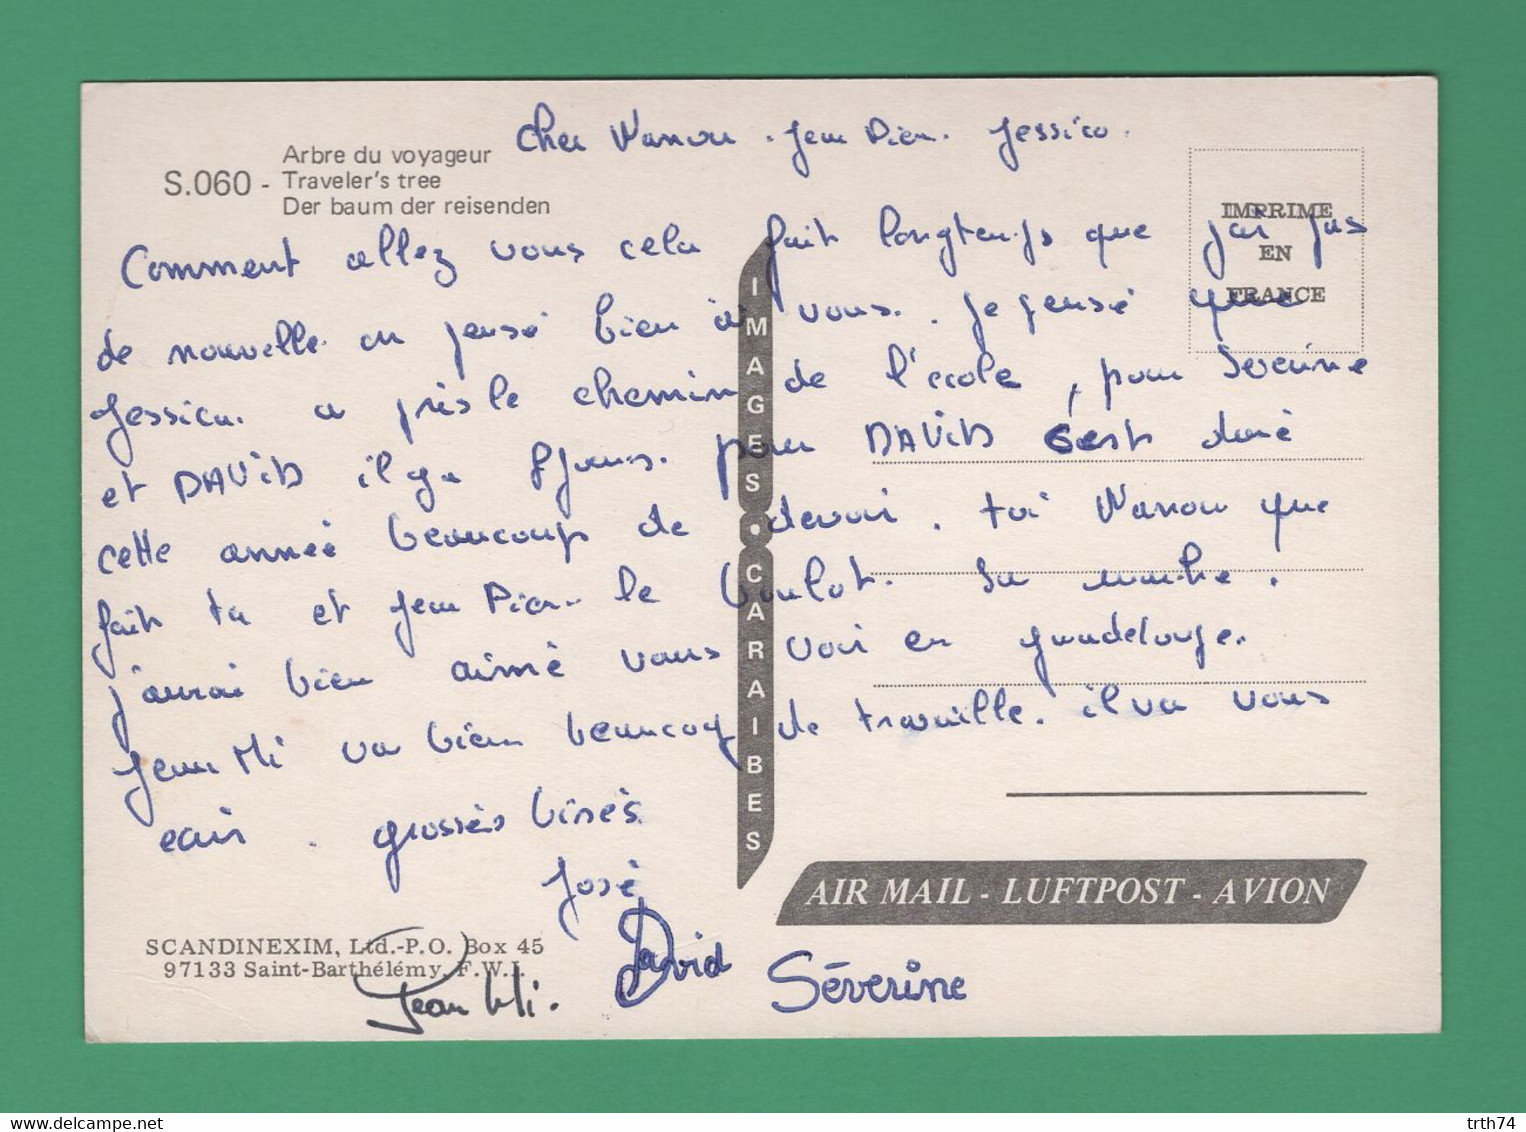 Cher Nanou. Jean Pierr. Jessica.
Arbre du voyageur
S.060 - Traveler's tree
Der baum der reisenden
IMPRIME
EN
FRANCE
Comment allez vous cela fait longtemps que j'ai pas
de nouvelle. on pensé bien à vous.. Je pensé que
Jessica. a pris le chemin de l'école, pour Severine
et DAViD il y a 8 jours. pour DAViD c'est duré
cette année beaucoup de devoir. toi Nanou que
fait tu et Jean Pierr. le boulot. sa marche.
j'aurai bien aimé vous voir en guadeloupe.
Jean Mi va bien beaucoup de travaille. il va vous
ecrir. grossés bisés
José
David
Séverine
Jean Mi.
IMAGES • CARAIBES
AIR MAIL - LUFTPOST - AVION
SCANDINEXIM, Ltd.-P.O. Box 45
97133 Saint-Barthélémy, F.W.I.
delcampe.net
trth74